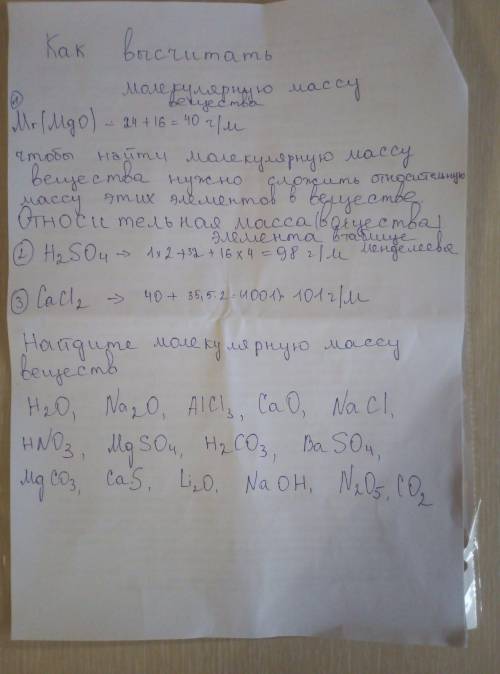 Как высчитать
молекулярную массу
вещества
① Mr(MgO) = 24+16=40 г/м
чтобы найти молекулярную массу
вещества нужно сложить относительную
массу этих элементов в веществе.
Относительная масса (вещества)
элемента в таблице
менделеева
② H2SO4 → 1×2+32+16×4=98 г/м
③ CaCl2 → 40 + 35,5·2= 101 г/м
Найдите молекулярную массу
веществ
H2O, Na2O, AlCl3, CaO, NaCl,
HNO3, MgSO4, H2CO3, BaSO4,
MgCO3, CaS, Li2O, NaOH, N2O5, CO2